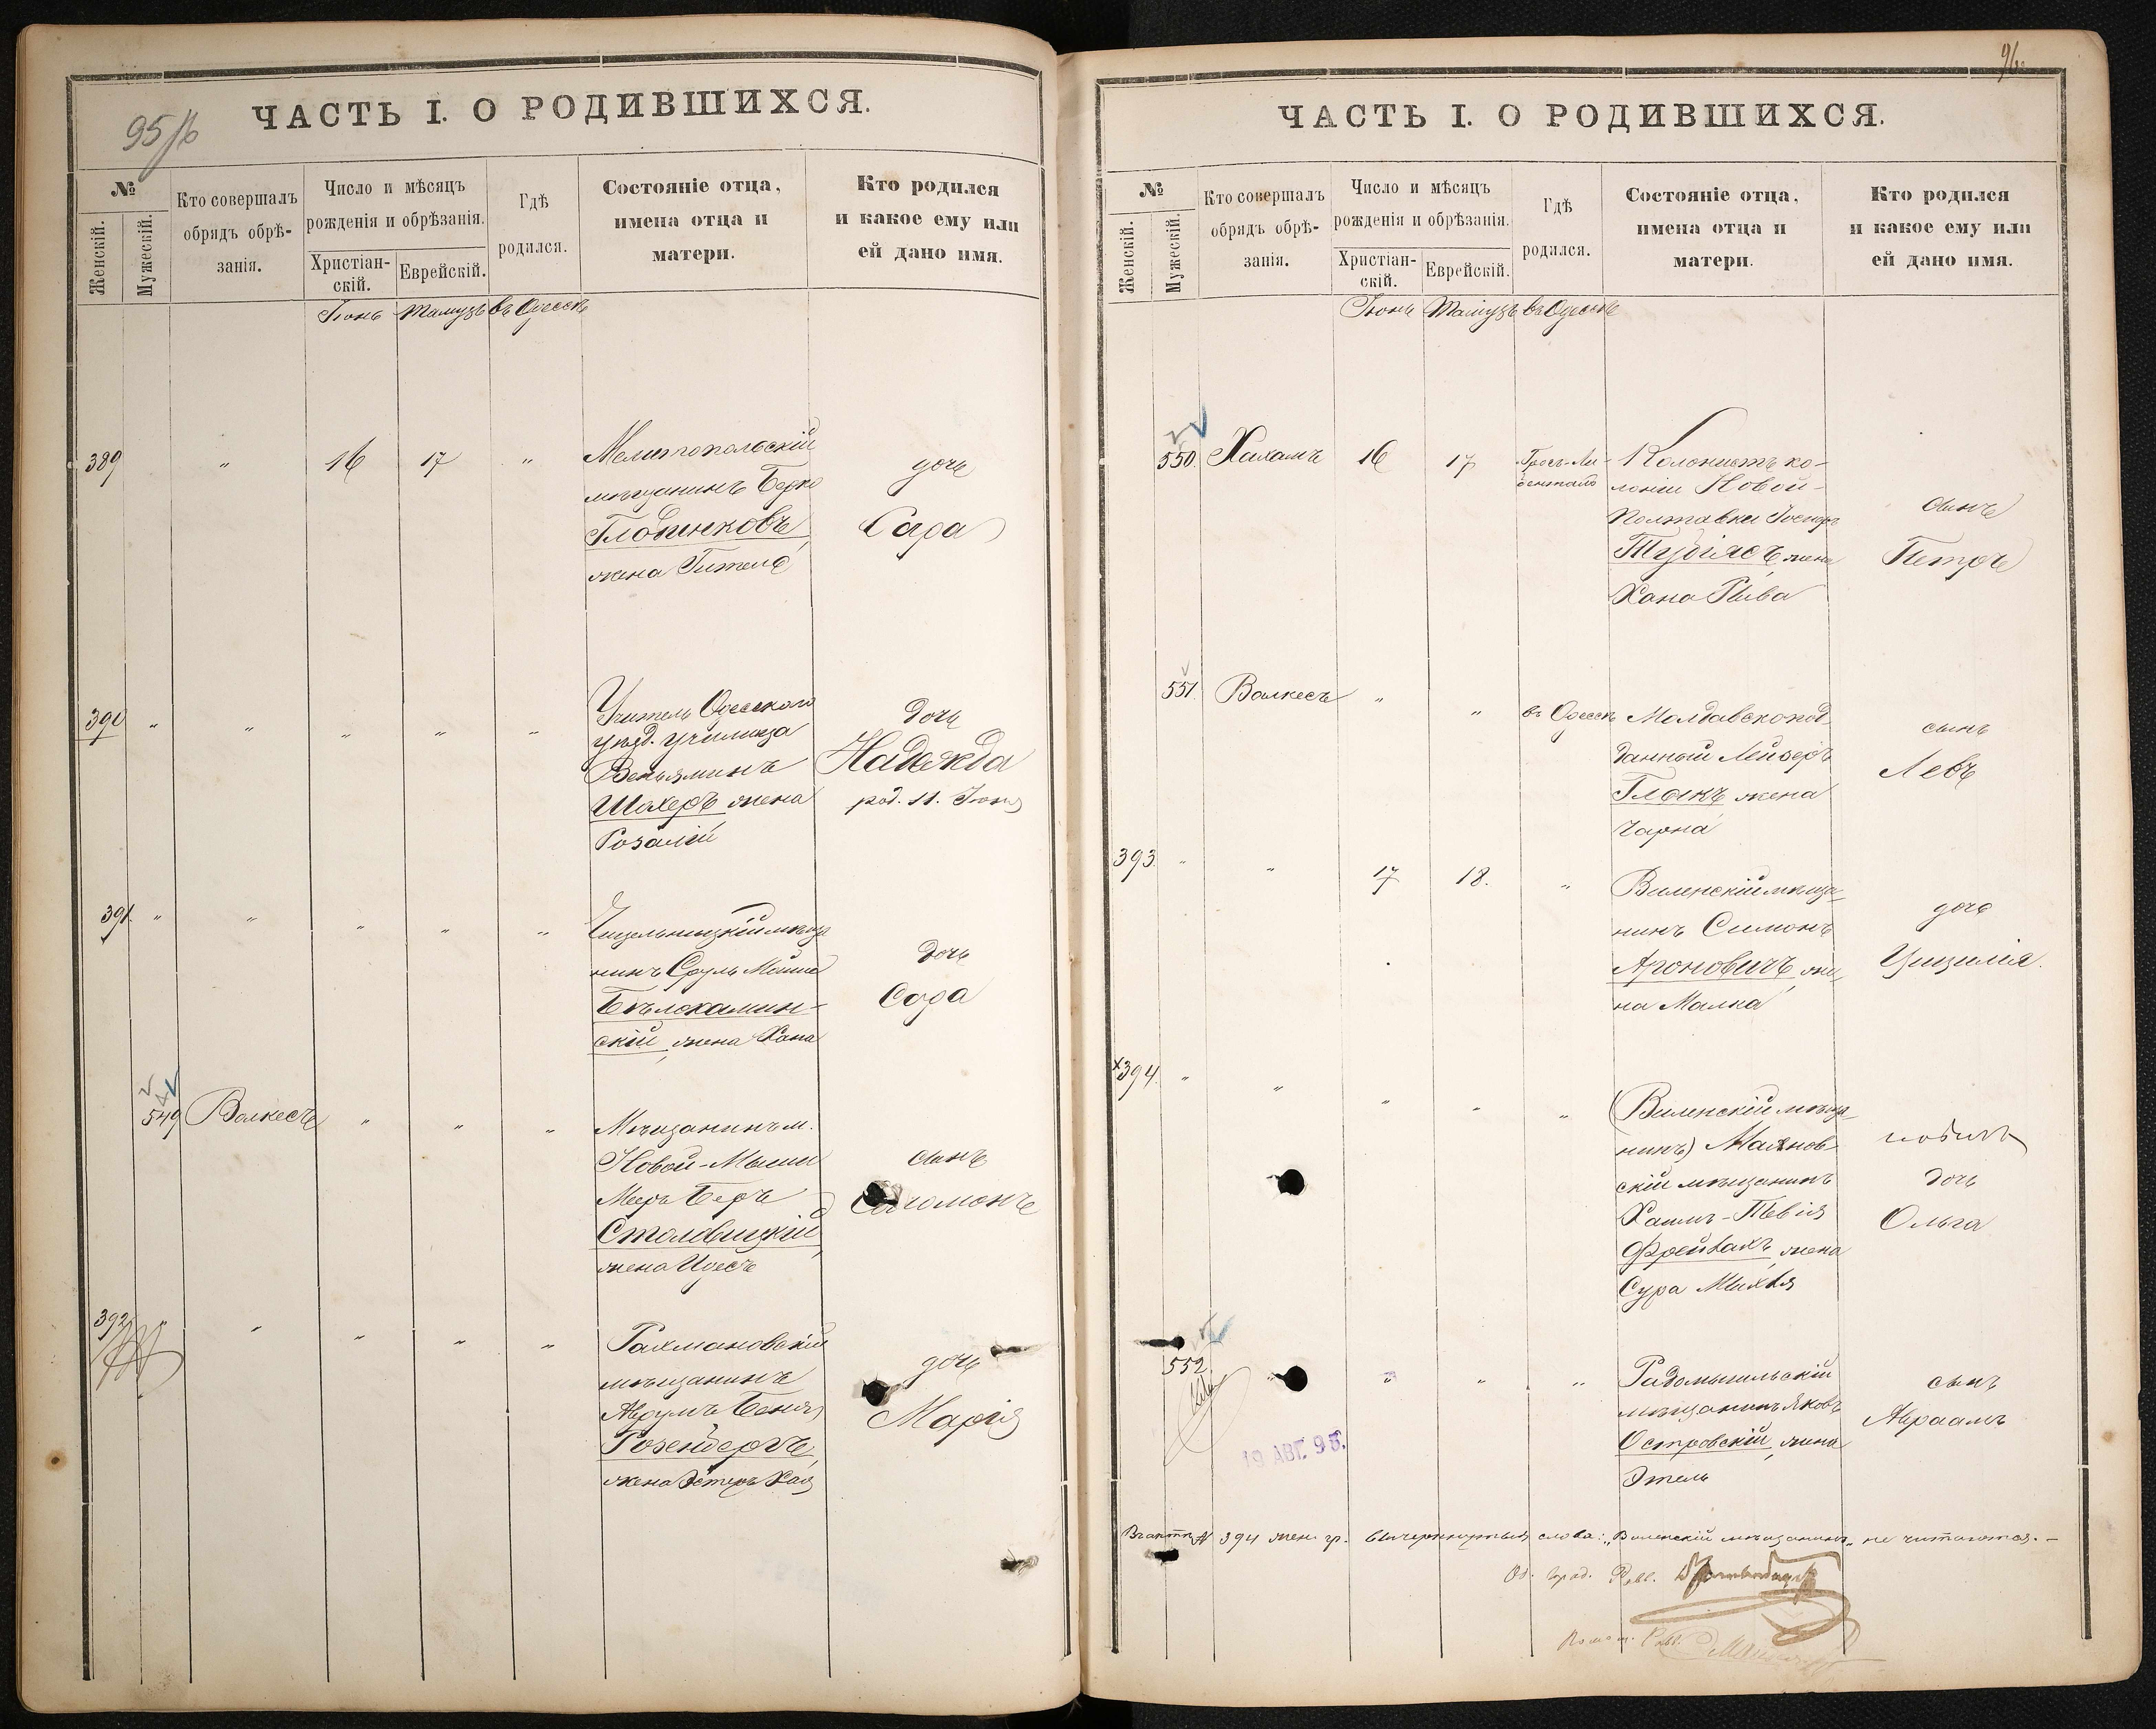 95/б
ЧАСТЬ I. О РОДИВШИХСЯ.
№
Женскій.
Мужескій.
Кто совершалъ
обрядъ обрѣ-
занія.
Число и мѣсяцъ
рожденія и обрѣзанія.
Христіан-
скій.
Еврейскій.
Гдѣ
родился.
Состояніе отца,
имена отца и
матери.
Кто родился
и какое ему или
ей дано имя.
Іюнь Тамузъ въ Одессѣ
389 " 16 17 "
Мелитопольскій
мѣщанинъ Берко
жена Гитель
дочь
Сара
390 " " " " "
Учитель Одесскаго
уѣзд. училища
Веньяминъ
Шахеръ жена
Розалія
дочь
Надежда
род. 11. Іюня
391. " " " " "
нинъ Сруль Мойше
Бѣлокамин-
скій, жена Хана
дочь
Сара
549 Валкесъ " " "
Мѣщанинъ м.
Новой-Мыши
Мееръ Беръ
Столовицкій,
жена Идесъ
сынъ
Соломонъ
392 " " " " "
Рахмановскій
мѣщанинъ
Аврумъ Беня
жена Эстеръ Хая
дочь
Марія
96.
ЧАСТЬ I. О РОДИВШИХСЯ.
№
Женскій.
Мужескій.
Кто совершалъ
обрядъ обрѣ-
занія.
Число и мѣсяцъ
рожденія и обрѣзанія.
Христіан-
скій.
Еврейскій.
Гдѣ
родился.
Состояніе отца,
имена отца и
матери.
Кто родился
и какое ему или
ей дано имя.
Іюнь Тамузъ въ Одессѣ
550. Хахамъ 16 17 Гросъ-Ли-
бенталь
Колонистъ ко-
лоніи Новой-
Полтавки
Тубіясъ, жена
Хана Рива
сынъ
Петръ
551. Валкесъ " " въ Одессѣ
Молдавскопод-
данный Лейзеръ
жена
Чарна
сынъ
Левъ
393. " " 17 18. "
Виленскій мѣща-
нинъ Симонъ
Ароновичъ, же-
на Малка
дочь
Цицилія.
394. " " " " "
(Виленскій мѣща-
нинъ) Маянов-
скій мѣщанинъ
Хаимъ-Тевія
Фрейтахъ, жена
Сура
дочь
Ольга
552. " " " "
Радомысльскій
мѣщанинъ Яковъ
Островскій, жена
Этель
сынъ
Авраамъ
19 АВГ. 98.
Въ актѣ № 394 жен. гр. вычеркнутыя слова: „Виленскій мѣщанинъ" не читаются.—
Од. Град. Равв.
Помощ. Равв.